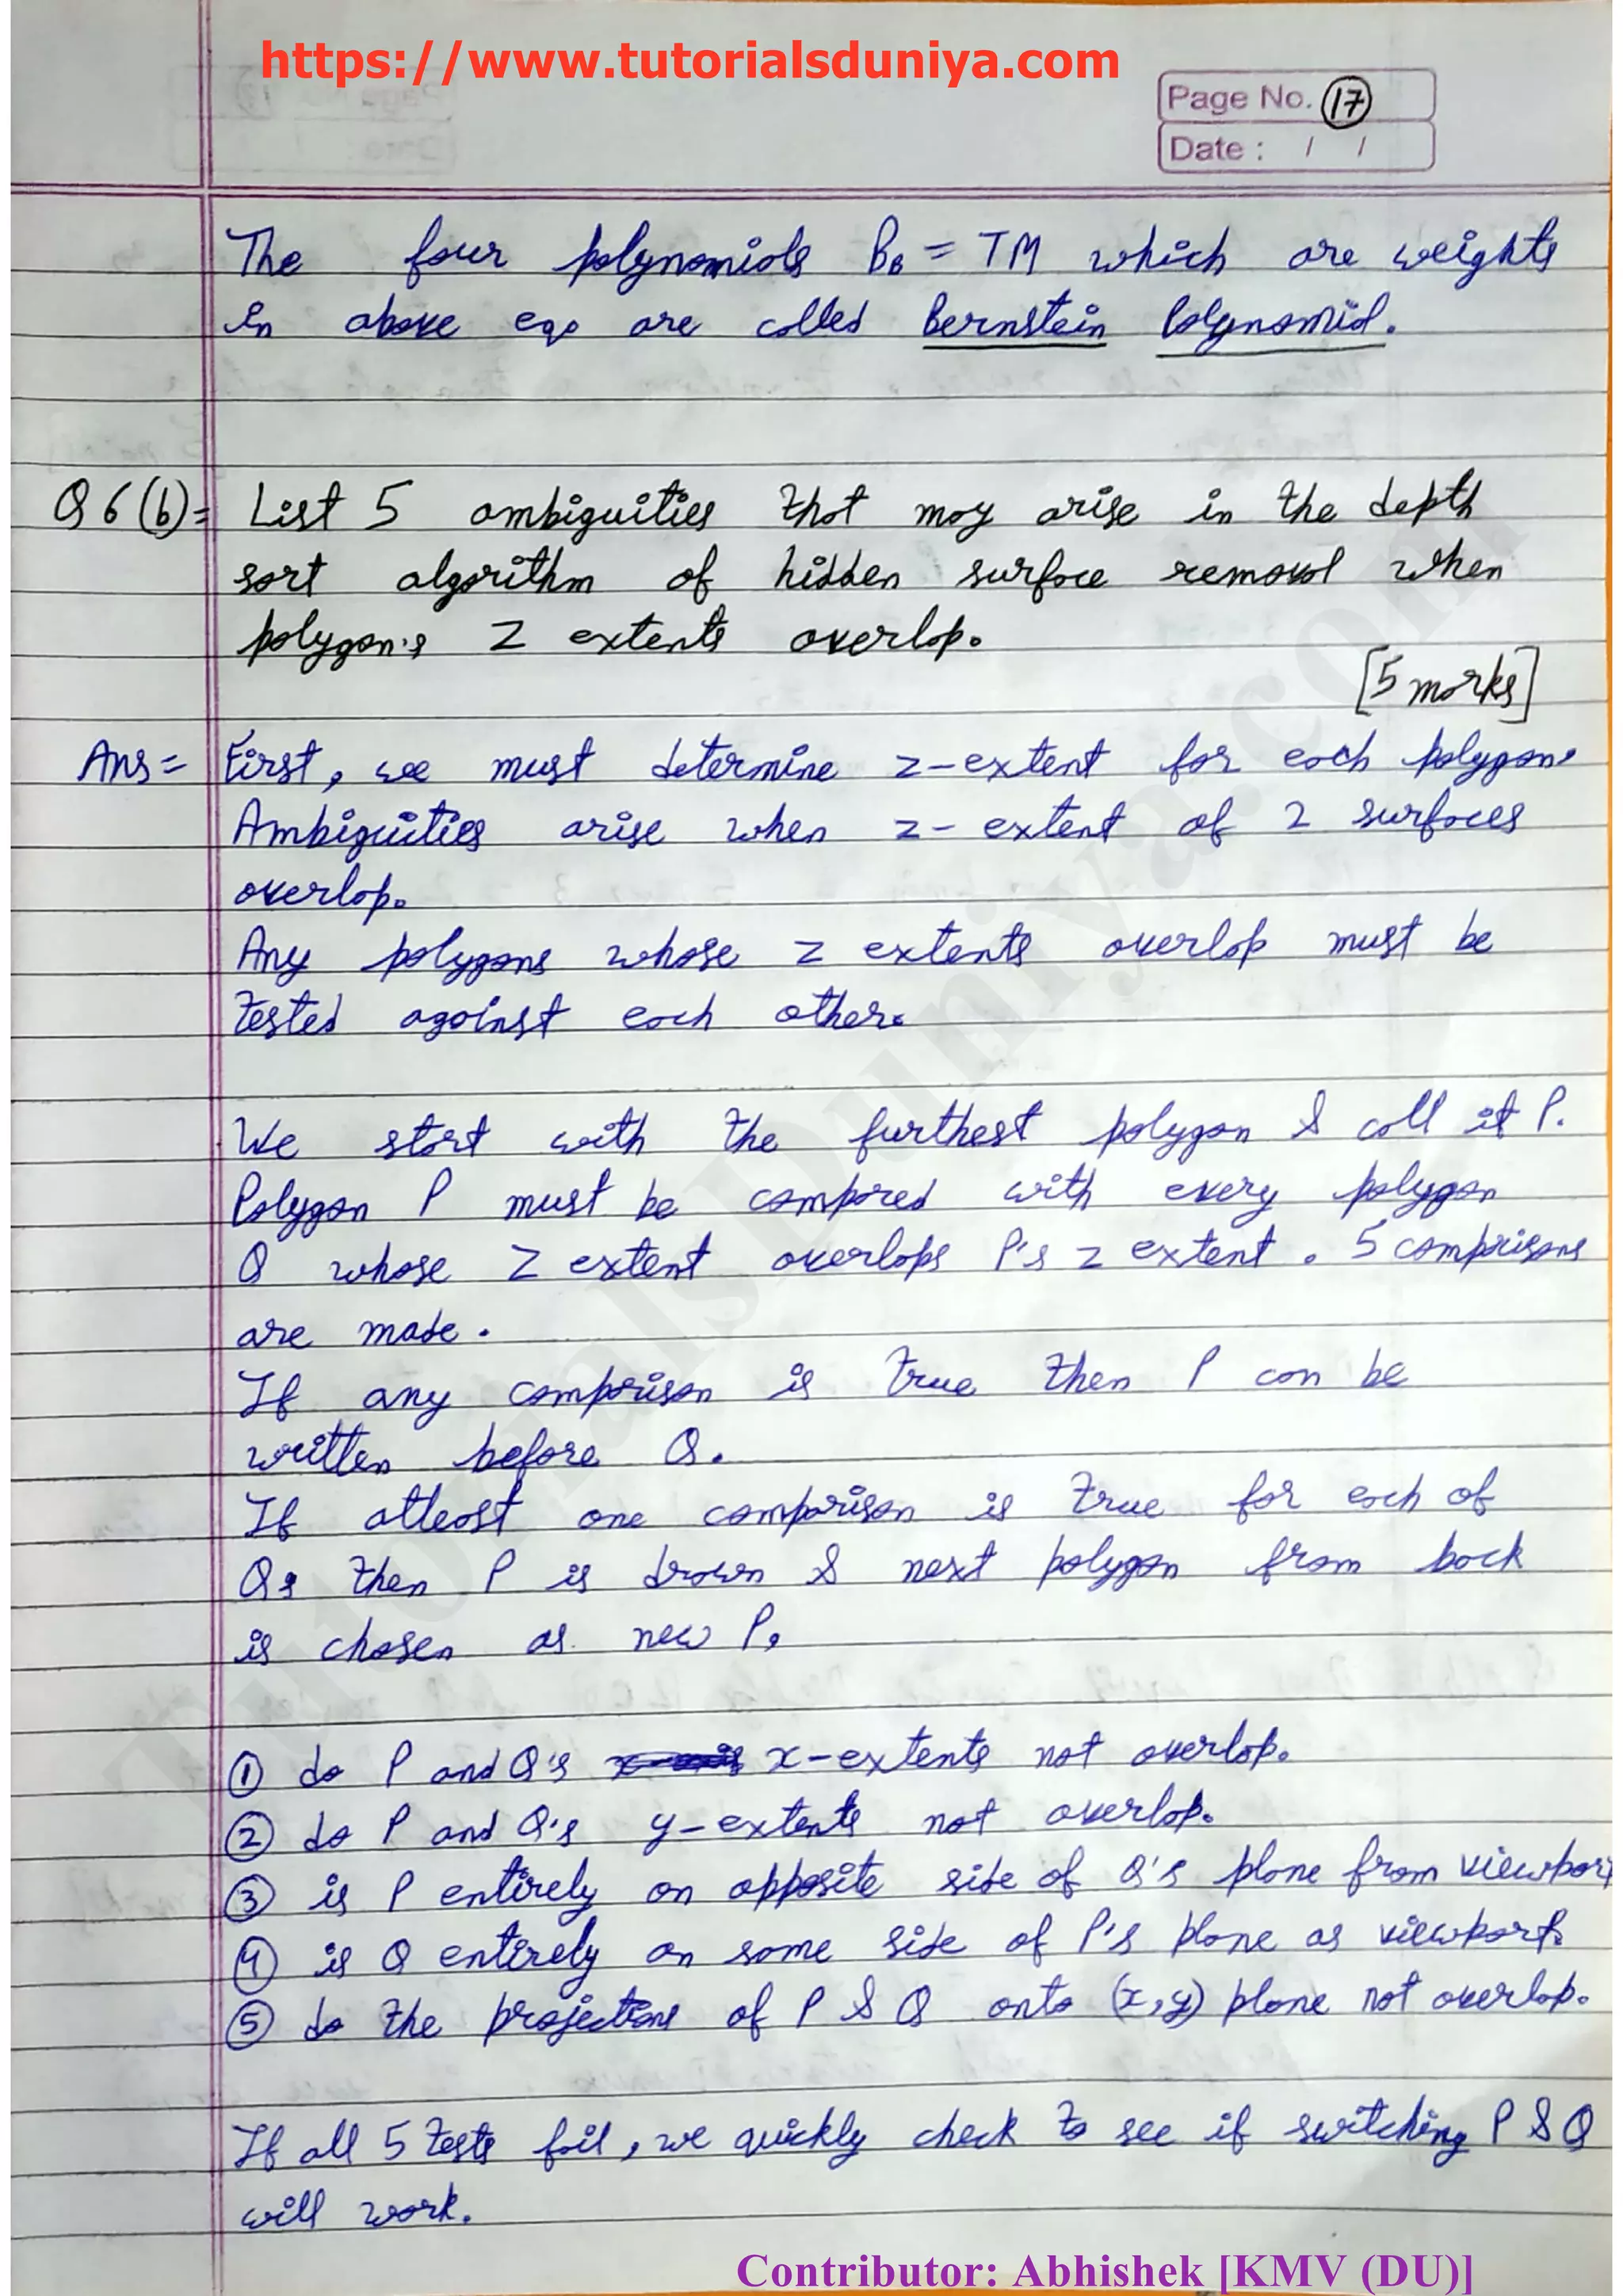 https://www.tutorialsduniya.com
Page No. 17
Date : / /
The four polynomials B_B = TM which are weights
in above eqⁿ are called Bernstein Polynomial.
Q 6(b)= List 5 ambiguities that may arise in the depth
sort algorithm of hidden surface removal when
polygon's Z extents overlap.
[5 marks]
Ans = First, we must determine z-extent for each polygon.
Ambiguities arise when z-extent of 2 surfaces
overlap.
Any polygons whose z extents overlap must be
tested against each other.
We start with the furthest polygon & call it P.
Polygon P must be compared with every polygon
Q whose Z extent overlaps P's z extent. 5 comprisons
are made.
If any comprison is true then P can be
written before Q.
If atleast one comparison is true for each of
Qs then P is drawn & next polygon from back
is chosen as new P.
① do P and Q's x-extents not overlap.
② do P and Q's y-extents not overlap.
③ is P entirely on opposite side of Q's plane from viewport
④ is Q entirely on same side of P's plane as viewport.
⑤ do the projections of P & Q onto (x,y) plane not overlap.
If all 5 tests fail, we quickly check to see if switching P & Q
will work.
TutorialsDuniya.com
Contributor: Abhishek [KMV (DU)]